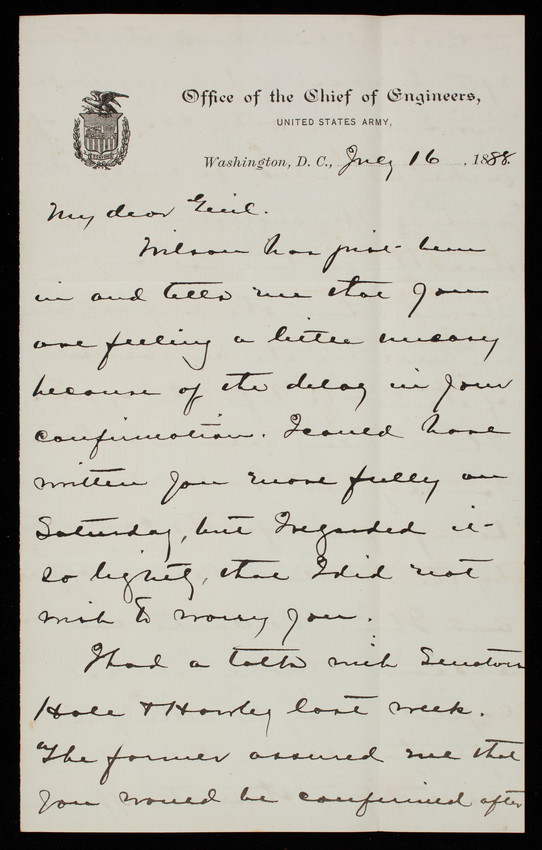 Office of the Chief of Engineers,
UNITED STATES ARMY,
Washington, D. C., July 16, 1888
My dear Genl.
Wilson has just been
in and tells me that you
are feeling a little uneasy
because of the delay in your
confirmation. I could have
written you more fully on
Saturday, but I regarded it
so lightly, that I did not
wish to worry you.
I had a talk with Senators
Hale & Hawley last week.
The former assured me that
you would be confirmed after